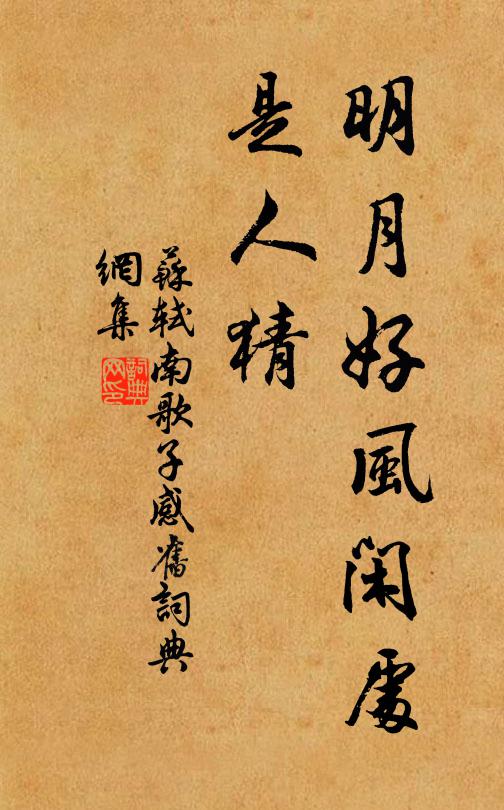 明月好風閑處
是人猜
蘇軾南歌子感舊詞典
網集
詞典網印